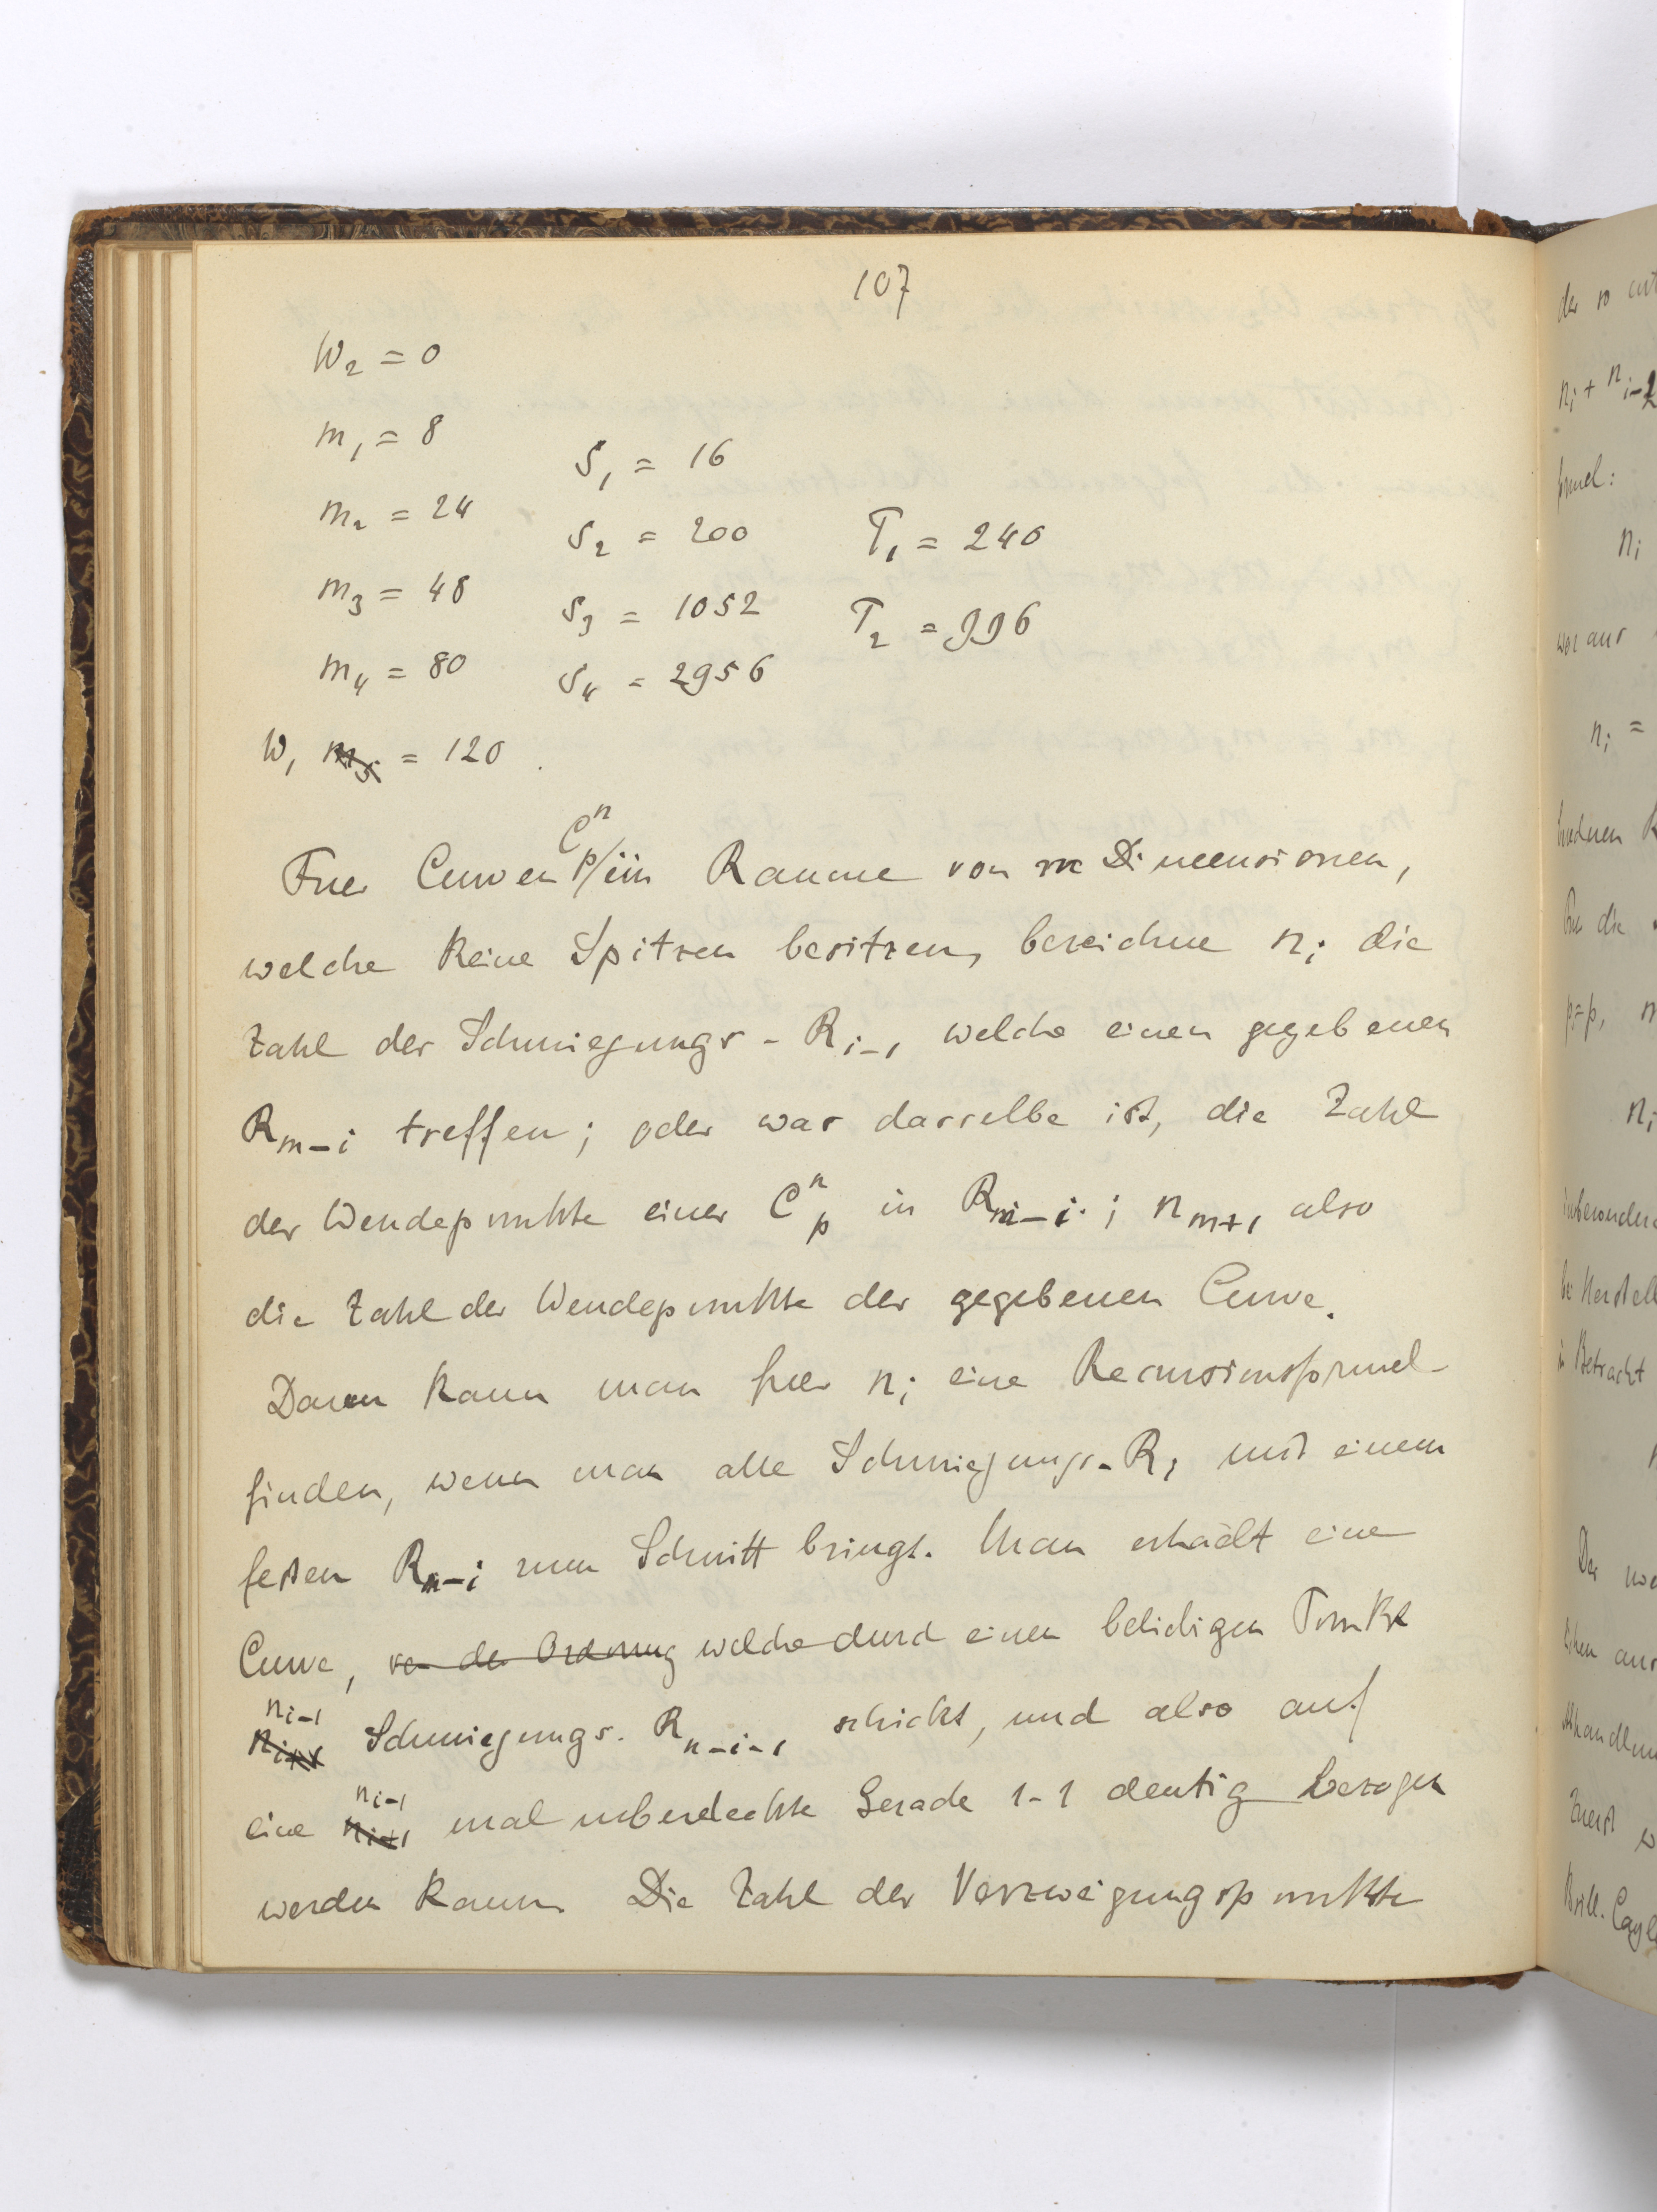 107
W₂ = 0
m₁ = 8
S₁ = 16
m₂ = 24
S₂ = 200
T₁ = 240
m₃ = 48
S₃ = 1052
T₂ = 996
m₄ = 80
S₄ = 2956
W₁ m₅ = 120
Fuer Curven C^n_p im Raume von m Dimensionen,
welche keine Spitzen besitzen, bezeichne n_i die
Zahl der Schmiegungs-R_{i-1} welche einen gegebenen
R_{m-i} treffen; oder was dasselbe ist, die Zahl
der Wendepunkte einer C^n_p in R_{m-i}; n_{m+1} also
die Zahl der Wendepunkte der gegebenen Curve.
Dann kann man fuer n_i eine Recursionsformel
finden, wenn man alle Schmiegungs-R_i mit einem
festen R_{n-i} zum Schnitt bringt. Man erhaelt eine
Curve, von der Ordnung welche durch einen beliebigen Punkt
n_{i-1}
n_{i+1} Schmiegungs. R_{n-i-1} schickt, und also auf
n_{i-1}
eine n_{i+1} mal ueberdeckte Gerade 1-1 deutig bezogen
werden kann. Die Zahl der Verzweigungspunkte
der so
n_i + n_{i-2}
formel:
n_i
woraus
n_i =
Fuer die
p=p,
n_i
insbesondere
in Betracht
Der
Zuerst
Brill.